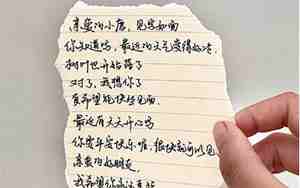 亲爱的小唐，见字如面
你知道吗，最近的天气变得好冷
树叶也开始落了
对了，我想你了
真希望能快些见面
最近有天天开心吗
你要平安快乐喔，很快就可以见
亲爱的好朋友
我希望你永远